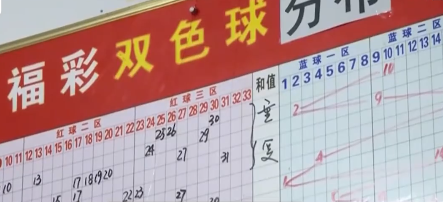 福彩 双色球 分布
红球二区 红球三区 和值 蓝球一区 蓝球二区
10 11 12 13 14 15 16 17 18 19 20 21 22 23 24 25 26 27 28 29 30 31 32 33 1 2 3 4 5 6 7 8 9 9 10 11 12 13 14
30 10
25 26 29 2 9
24 27 31
10 13 17 18 19 20 4
15 17 22 23 27 30